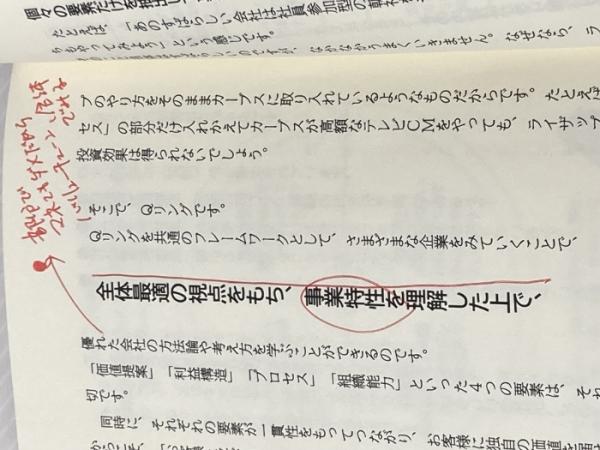 個々の要素だけを抽出し
たとえば、「あのすばらしい会社は社員参加型の
らもやってみよう」という感じです。
なかなかうまくいきません。なぜなら、ラ
プのやり方をそのままカーブスに取り入れているようなものだからです。たとえば
セス」の部分だけ入れかえてカーブスが高額なテレビCMをやっても、ライザップ
投資効果は得られないでしょう。
そこで、Qリングです。
Qリングを共通のフレームワークとして、さまざまな企業をみていくことで、
全体最適の視点をもち、事業特性を理解した上で、
優れた会社の方法論や考え方を学ぶことができるのです。
「価値提案」「利益構造」「プロセス」「組織能力」といった4つの要素は、それ
切です。
同時に、それぞれの要素が一貫性をもってつながり、お客様に独自の価値を届け